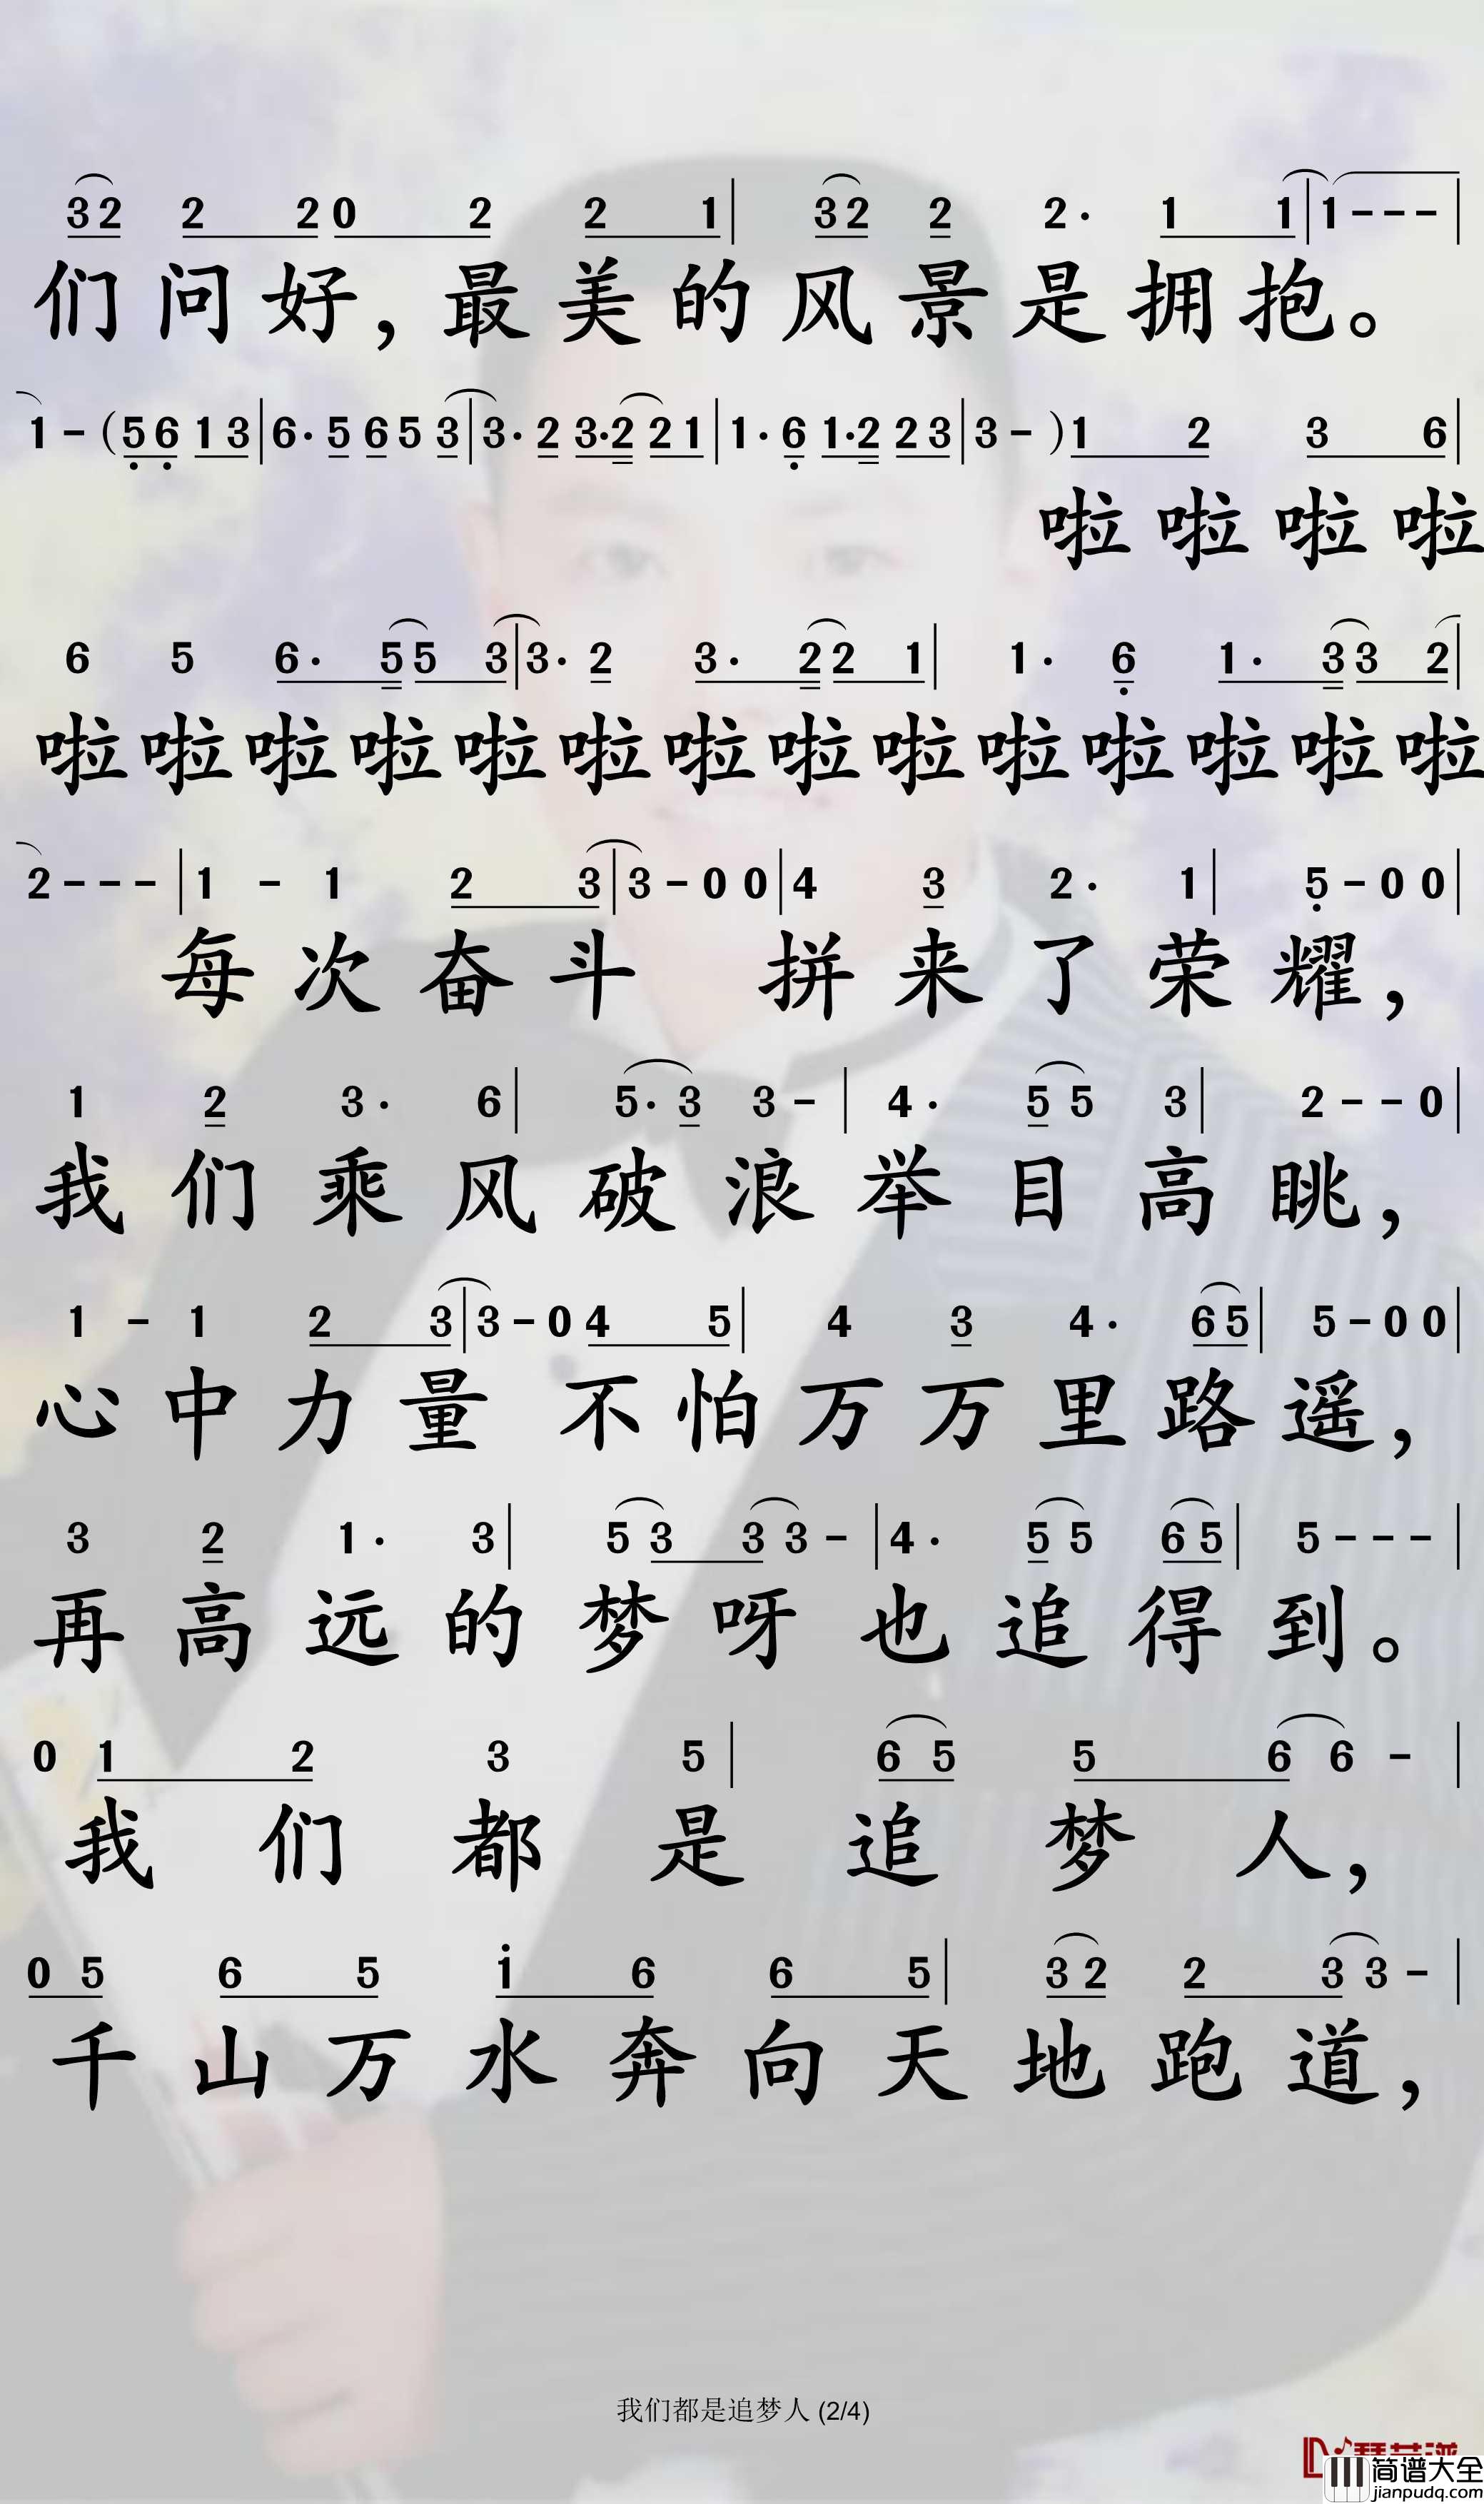 32 2 20 2 2 1| 32 2 2· 1 1|1---|
们问好，最美的风景是拥抱。
1-(56 13|6·5 65 3|3·2 3·2 21|1·6 1·2 23|3-)1 2 3 6|
啦啦啦啦
6 5 6· 55 3|3·2 3· 22 1| 1· 6 1· 33 2|
啦啦啦啦啦啦啦啦啦啦啦啦啦啦
2---|1 - 1 2 3|3-00|4 3 2· 1| 5-00|
每次奋斗 拼来了荣耀，
1 2 3· 6| 5·3 3-| 4· 55 3| 2--0|
我们乘风破浪举目高眺，
1 - 1 2 3|3-04 5| 4 3 4· 65| 5-00|
心中力量不怕万万里路遥，
3 2 1· 3| 53 33-|4· 55 65| 5---|
再高远的梦呀也追得到。
0 1 2 3 5| 65 5 66-|
我们都是追梦人，
05 6 5 i 6 6 5| 32 2 33-|
千山万水奔向天地跑道，
我们都是追梦人 (2/4)
简谱大全
jianpudq.com